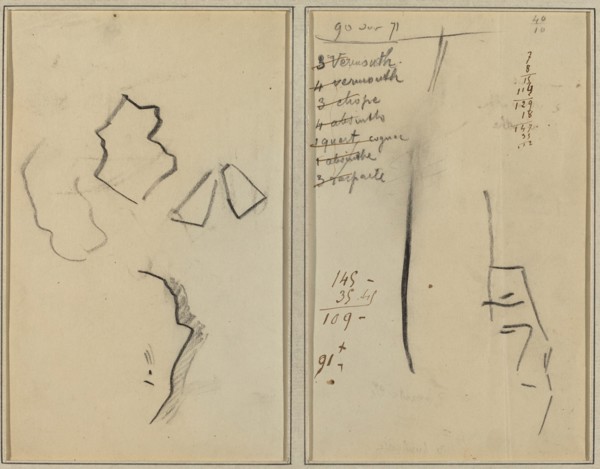 90 sur 71
40
10
3 Vermouth.
4 vermouth
3 chope
4 absinthe
1 quart cognac
1 absinthe
3
7
8
15
114
129
18
147
35
145 -
35 45
109 -
91 +